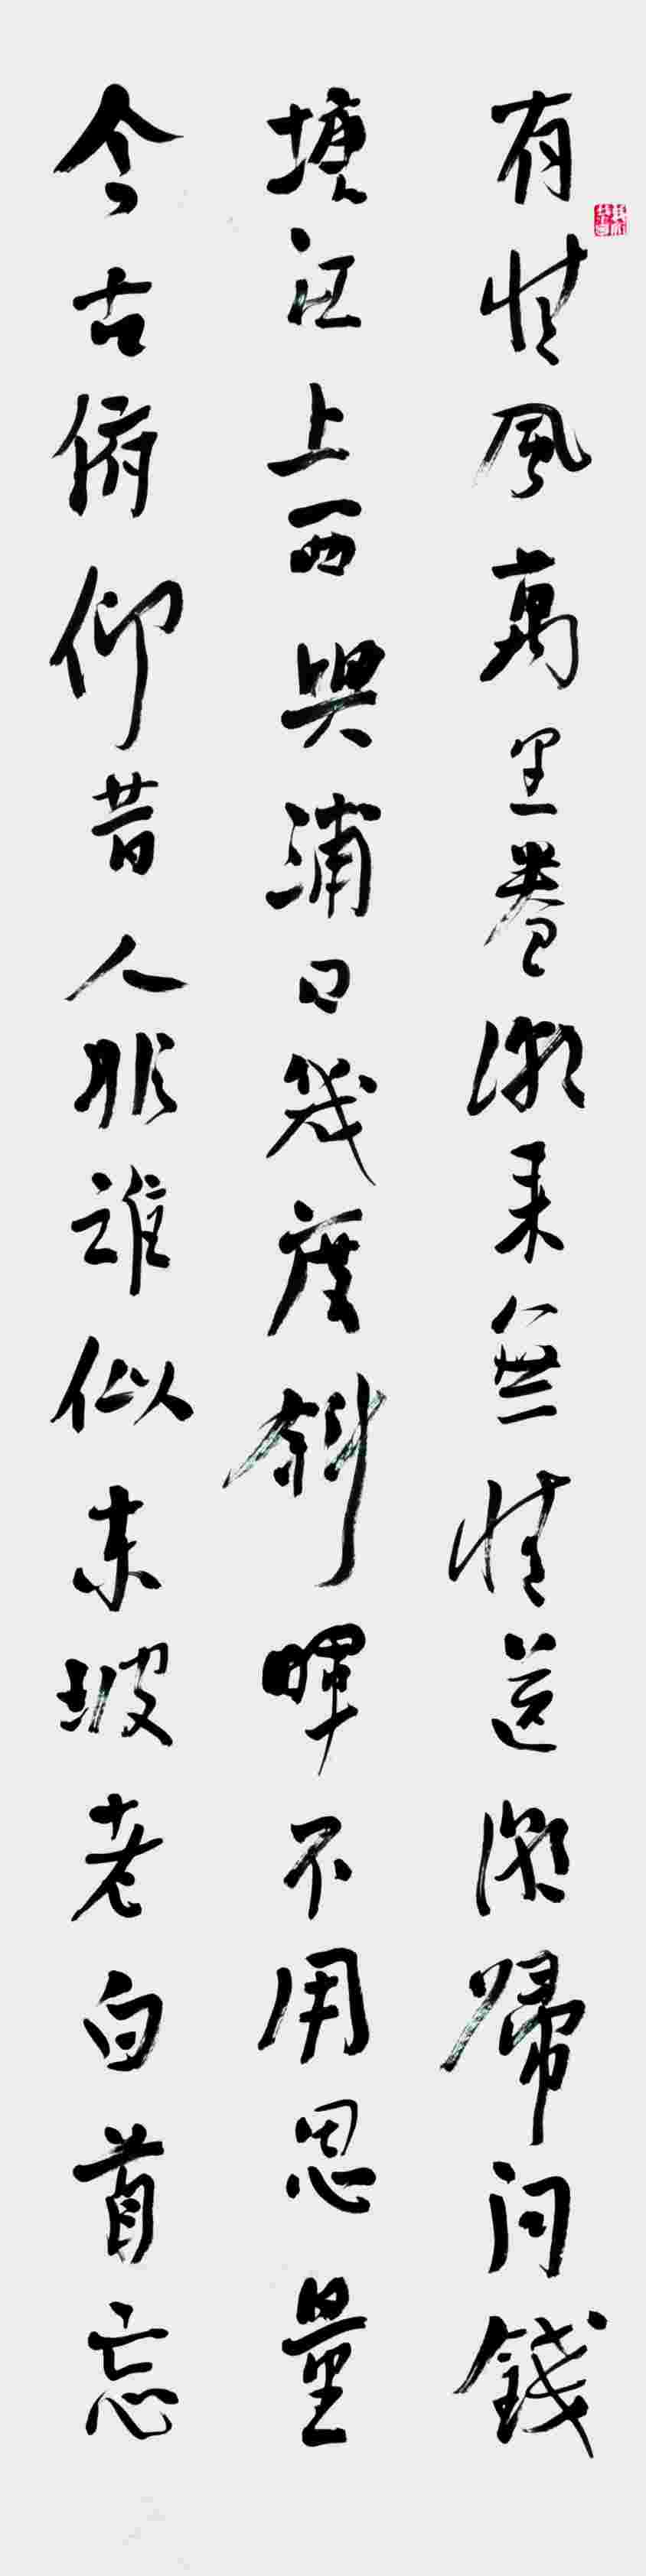 有情風萬里卷潮来無情送潮歸问錢
塘江上西興浦口幾度斜暉不用思量
今古俯仰昔人非誰似東坡老白首忘